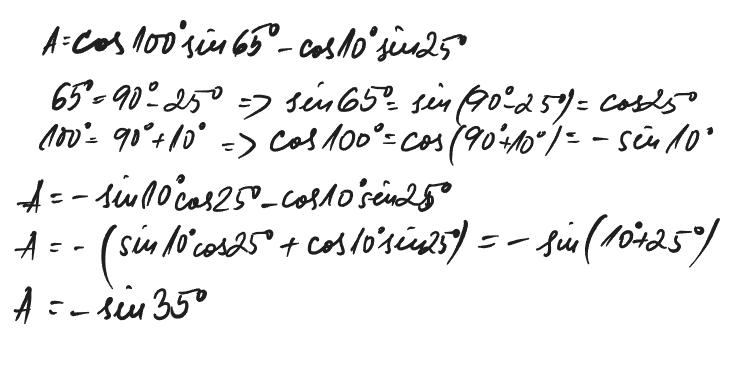 A=cos100°sin65°-cos10°sin25°
65°=90°-25° => sin65°=sin(90°-25°)=cos25°
100°=90°+10° => cos100°=cos(90°+10°)=-sin10°
A=-sin10°cos25°-cos10°sin25°
A=-(sin10°cos25°+cos10°sin25°)=-sin(10°+25°)
A=-sin35°